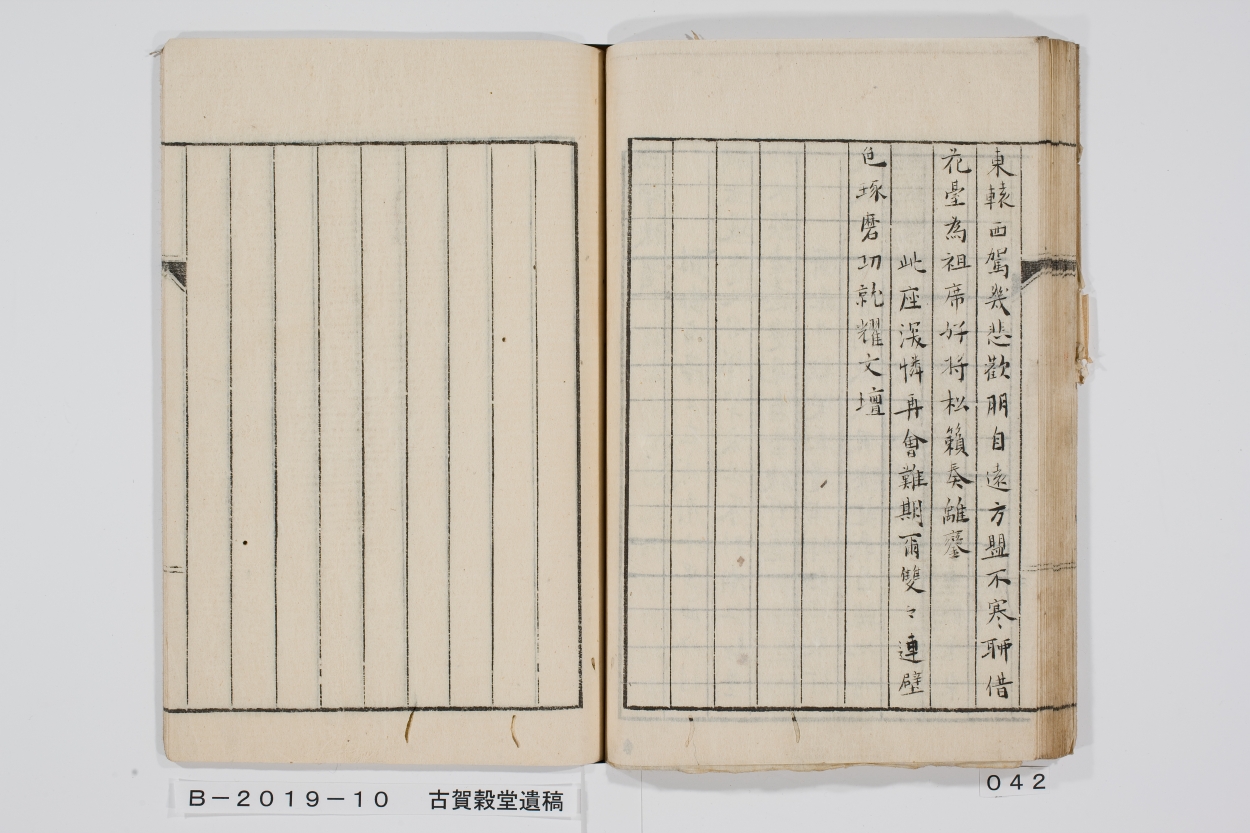 東轅西駕幾悲歡朋自遠方盟不寒聊借
花臺為祖席好将松籟奏離鑾
此座深憐再會難期爾雙々連璧
色琢磨功就耀文壇
B－2019－10　古賀穀堂遺稿
042